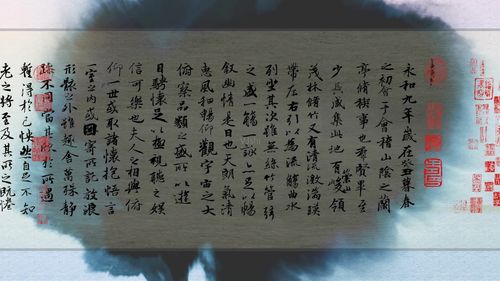 永和九年歲在癸丑暮春
之初會于會稽山陰之蘭
亭脩禊事也群賢畢至
少長咸集此地有崇山峻領
茂林脩竹又有清流激湍暎
帶左右引以為流觴曲水
列坐其次雖無絲竹管弦
之盛一觴一詠亦足以暢
叙幽情是日也天朗氣清
惠風和暢仰觀宇宙之大
俯察品類之盛所以遊
目騁懷足以極視聽之娛
信可樂也夫人之相與俯
仰一世或取諸懷抱悟言
一室之内或因寄所託放浪
形骸之外雖趣舍萬殊静
躁不同當其欣於所遇
蹔得於己怏然自足不知
老之將至及其所之既惓